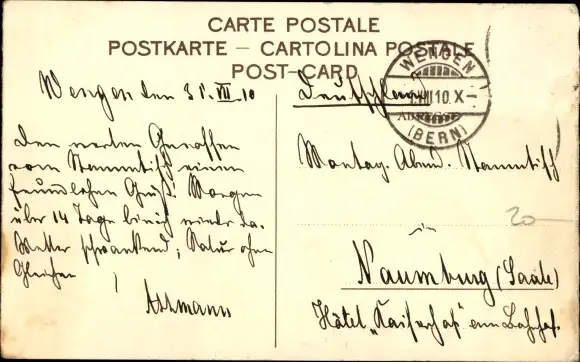 CARTE POSTALE
POSTKARTE – CARTOLINA POSTALE
POST-CARD
WENGEN
1.VIII.10.X–
(BERN)
Wengen den 31. VII 10
Den werten Genossen
vom Stammtisch einen
freundlichen Gruß! Morgen
über 14 Tage bin ich wieder da.
Wetter schwankend, Natur ohne
Gleichen
Assmann
Deutschland
Montag-Abend-Stammtisch
20–
Naumburg (Saale)
Hôtel „Kaiserhof" am Bahnhof.